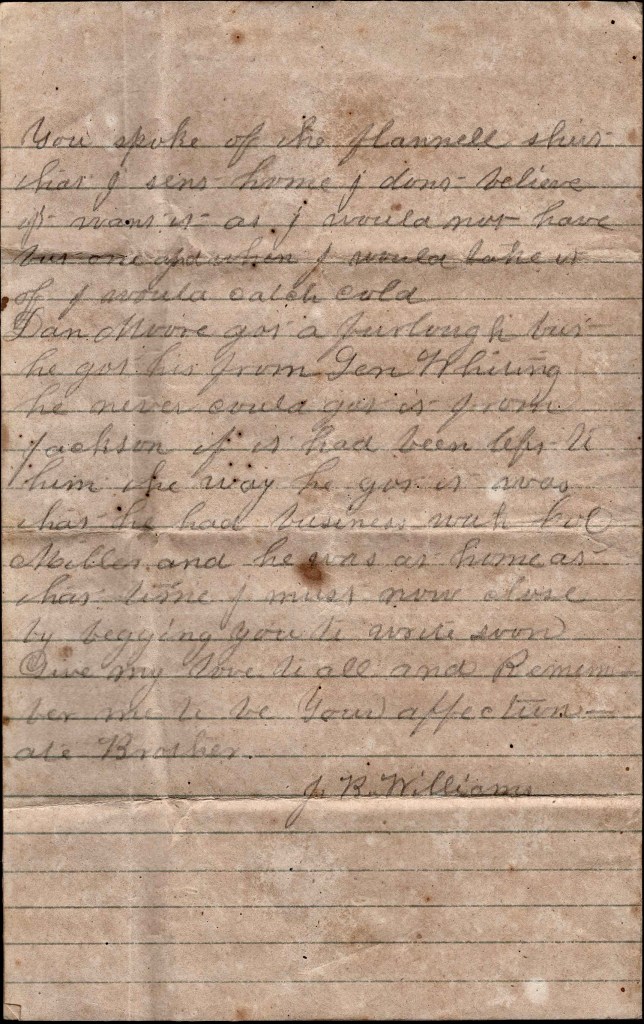 You spoke of the flannell shirt
that I sent home I dont believe
I want it as I would not have
but one and when I would take it
of I would catch cold
Dan Moore got a furlough but
he got his from Gen Whiting
he never could got it from
Jackson if it had been left to
him the way he got it was
that he had business with Col
and he was at home at
that time I must now close
by begging you to write soon
Give my love to all and Remem-
ber me to be Your affection-
ate Brother.
J. K. Williams